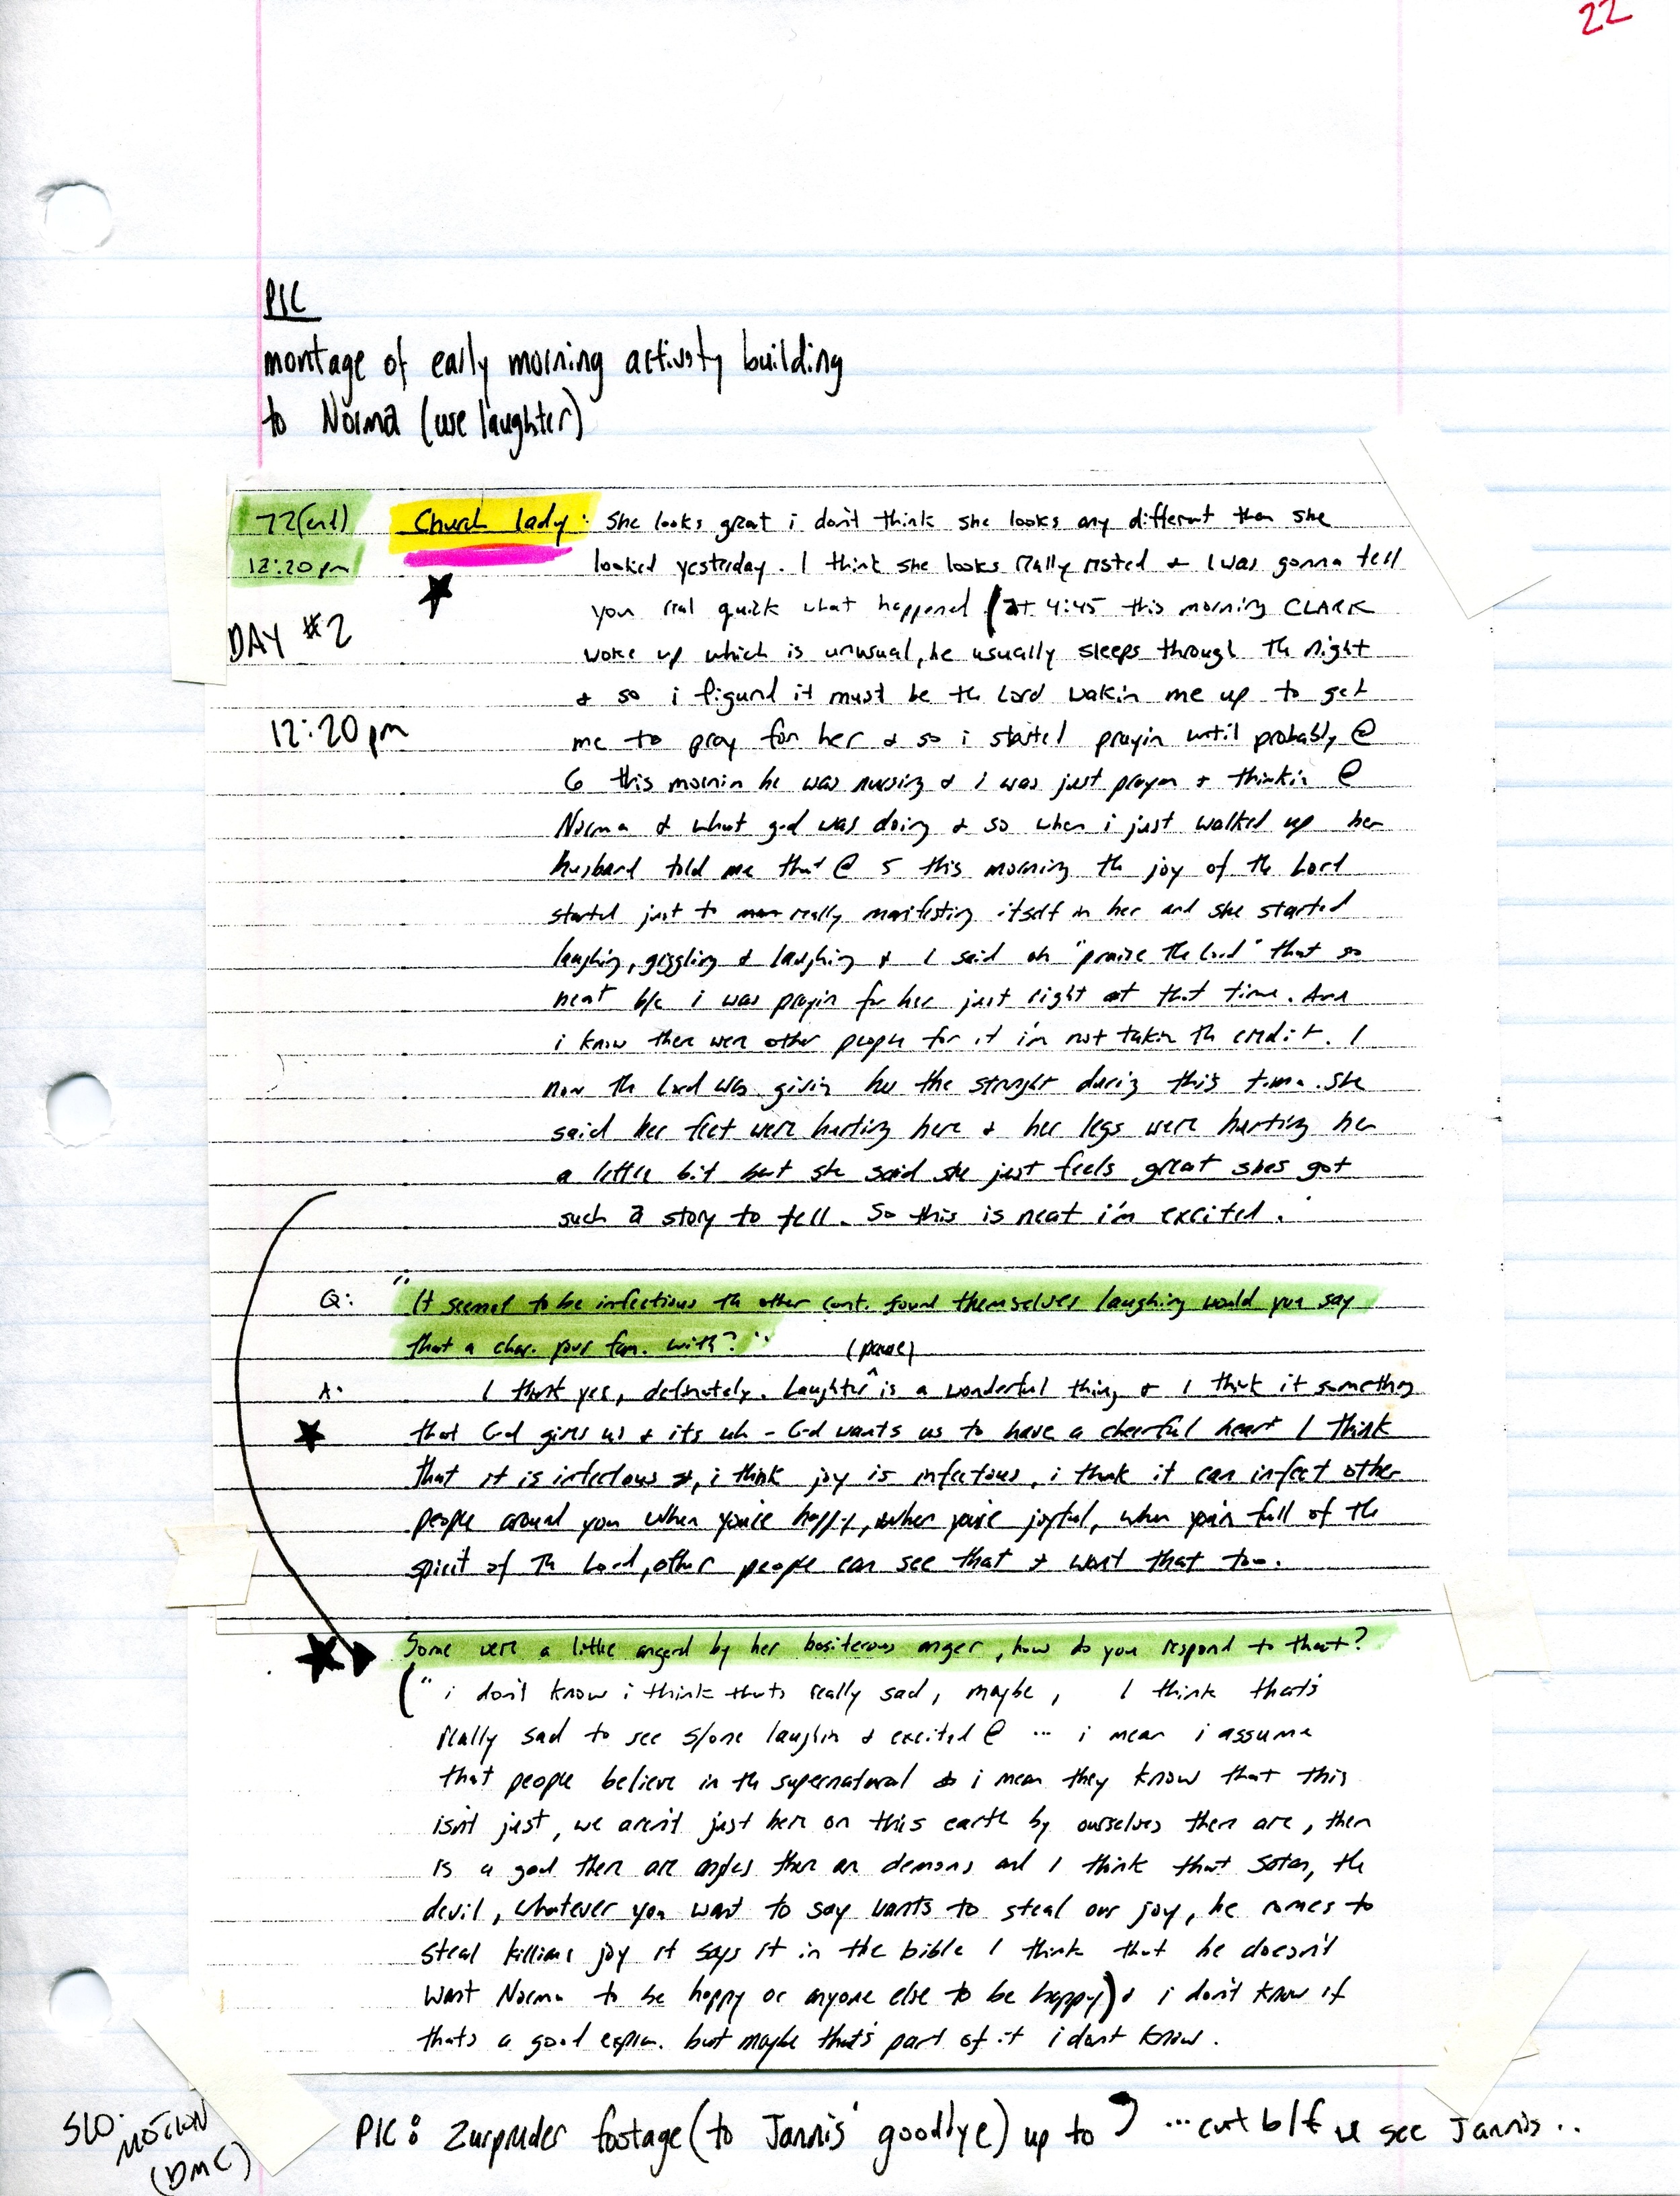 22
PIC
montage of early morning activity building
to Norma (use laughter)
72(end)
12:20 pm
DAY #2
12:20pm
Church lady: She looks great i don't think she looks any different then she
looked yesterday. I think she looks really rested & I was gonna tell
you real quick what happened (at 4:45 this morning CLARK
woke up which is unusual, he usually sleeps through th night
& so i figured it must be th Lord wakin me up to get
me to pray for her & so i started prayin until probably @
6 this mornin he was nursing & i was just prayen & thinkin @
Norma & what god was doing & so when i just walked up her
husband told me that @ 5 this morning th joy of th Lord
started just to really manifesting itself in her and she started
laughing, giggling & laughing & I said oh "praise the lord" that so
neat b/c i was prayin for her just right at that time. And
i know there were other people for it i'm not takin th credit. I
now th Lord was givin her the strenght during this time. She
said her feet were hurting here & her legs were hurting her
a little bit but she said she just feels great shes got
such a story to tell. So this is neat i'm excited.
Q: "It seemed to be infectious th other cont. found themselves laughing would you say
that a char. your fam. with?"
(pause)
A: I think yes, definately. Laughter ^ is a wonderful thing & I think it something
that God gives us & its uh - God wants us to have a cheerful heart I think
that it is infectious, i think joy is infectious, i think it can infect other
people around you when you're happy, when you're joyful, when you're full of the
spirit of th Lord, other people can see that & want that too.
Some were a little angerd by her boisterous anger, how do you respond to that?
("i don't know i think thats really sad, maybe, I think that's
really sad to see s/one laughin & excited @ ... i mean i assume
that people believe in th supernatural i mean they know that this
isn't just, we aren't just here on this earth by ourselves there are, there
is a god there are angles there are demons and I think that Satan, the
devil, whatever you want to say wants to steal our joy, he comes to
steal joy it says it in the bible I think that he doesn't
want Norma to be happy or anyone else to be happy) & i don't know if
thats a good explan. but maybe that's part of it i dont know.
SLO-
MOTION
(DMC)
PIC: Zurpruder footage (to Jannis' goodbye) up to ... cut b/f we see Jannis..